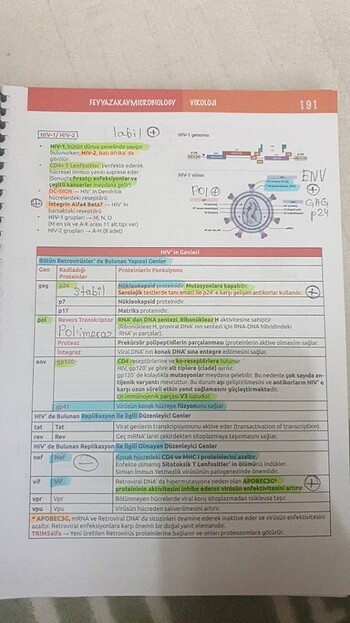 FEYYAZAKAYMICROBIOLOGY VİROLOJİ 191
HIV-1/ HIV-2
labil +
HIV-1, bütün dünya genelinde yaygın
bulunurken, HIV-2, Batı Afrika' da
görülür.
CD4+ T Lenfositler'i enfekte ederek
hücresel immün yanıtı suprese eder
(Sonuçta fırsatçı enfeksiyonlar ve
çeşitli kanserler meydana gelir)
DC-SIGN → HIV' in Dendritik
hücrelerdeki reseptörü
İntegrin Alfa4 Beta7 → HIV' in
barsaktaki reseptörü
HIV-1 grupları → M, N, O
(M en sık ve A-K arası 11 alt tipi var)
HIV-2 grupları → A-H (8 adet)
HIV-1 genomu
HIV-1 virion
ENV
+
POL +
GAG
p24
HIV' in Genleri
Bütün Retrovirüsler' de Bulunan Yapısal Genler
Gen Kodladığı Proteinler Proteinlerin Fonksiyonu
gag p24 Nükleokapsid proteinidir. Mutasyonlara kapalıdır.
Stabil Serolojik testlerde tanı amacı ile p24' e karşı gelişen antikorlar kullanılır. +
p7 Nükleokapsid proteinidir.
p17 Matriks proteinidir.
pol Revers Transkriptaz RNA' dan DNA sentezi, Ribonükleaz H aktivitesine sahiptir
Polimeraz (Ribonükleaz H, proviral DNA' nın sentezi için RNA-DNA hibridindeki
RNA' yı parçalar).
Proteaz Prekürsör polipeptidlerin parçalanması (proteinlerin aktive olmasını sağlar.
İntegraz Viral DNA' nın konak DNA' sına entegre edilmesini sağlar.
env gp120 CD4 reseptörlerine ve ko-reseptörlere tutunur.
HIV, gp120' ye göre alt tiplere (clade) ayrılır.
gp120' de kolaylıkla mutasyonlar meydana gelebilir. Bu nedenle çok sayıda an-
tijenik varyantı mevcuttur. Bu durum aşı geliştirilmesini ve antikorların HIV' e
karşı uzun süreli etkin yanıt sağlamasını güçleştirmektedir.
En immünojenik parçası V3 lupudur.
gp41 Virüsün konak hücreye füzyonunu sağlar.
HIV' de Bulunan Replikasyon ile İlgili Düzenleyici Genler
tat Tat Viral genlerin transkripsiyonunu aktive eder (transactivation of transcription).
rev Rev Geç mRNA' ların çekirdekten sitoplazmaya taşınmasını sağlar.
HIV' de Bulunan Replikasyon ile İlgili Olmayan Düzenleyici Genler
nef Nef Konak hücredeki CD4 ve MHC I proteinlerini azaltır.
Enfekte olmamış Sitotoksik T Lenfositler' in ölümünü indükler.
Simian İmmun Yetmezlik virüsünün patogenezinde önemlidir.
vif Vif Retroviral DNA' da hipermutasyona neden olan APOBEC3G*
proteininin aktivitesini inhibe ederek virüsün enfektivitesini artırır. +
vpr Vpr Bölünmeyen hücrelerde viral koru sitoplazmadan nükleusa taşır.
vpu Vpu Virüsün hücreden salıverilmesini artırır.
* APOBEC3G, mRNA ve Retroviral DNA' da sitozinleri deamine ederek inaktive eder ve virüsün enfektivitesini
azaltır. Retroviral enfeksiyonlara karşı önemli bir doğal yanıt elemanıdır.
TRIM5alfa → Yeni üretilen Retrovirüs proteinlerine bağlanır ve onları proteozomlara götürür.